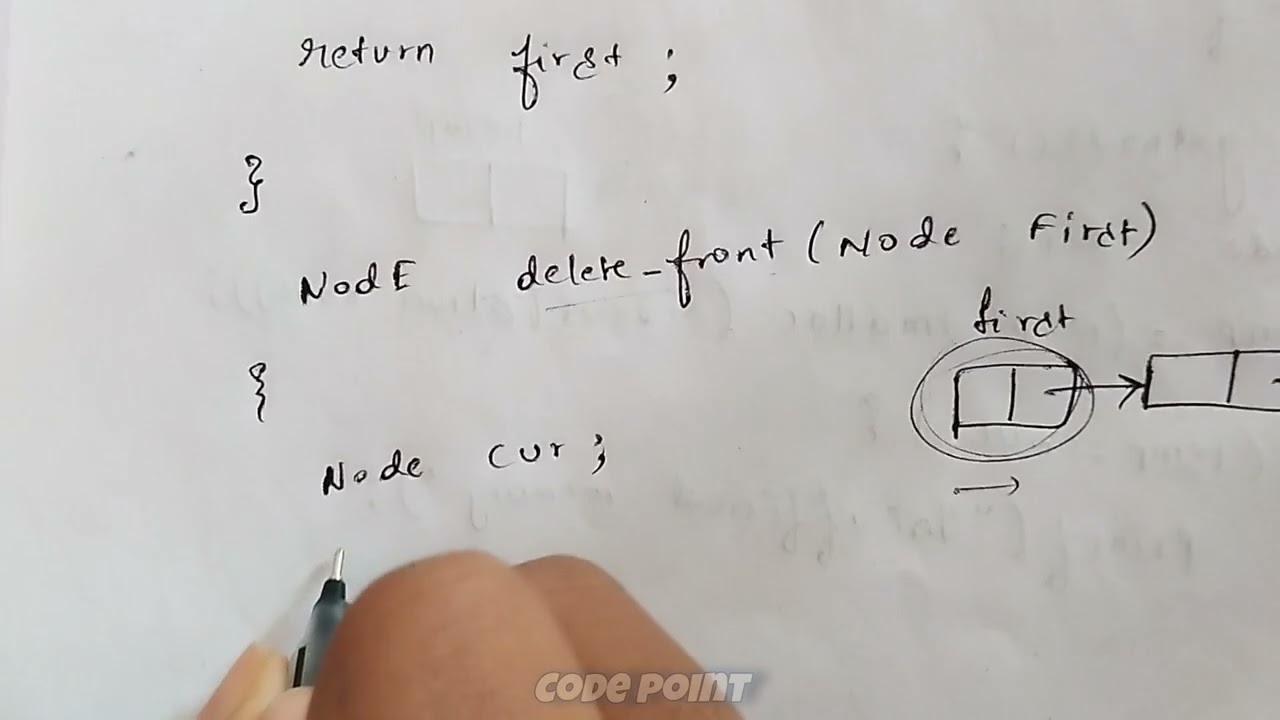 return first ;
}
NodE delete-front (Node First)
first
{
Node cur ;
CODE POINT